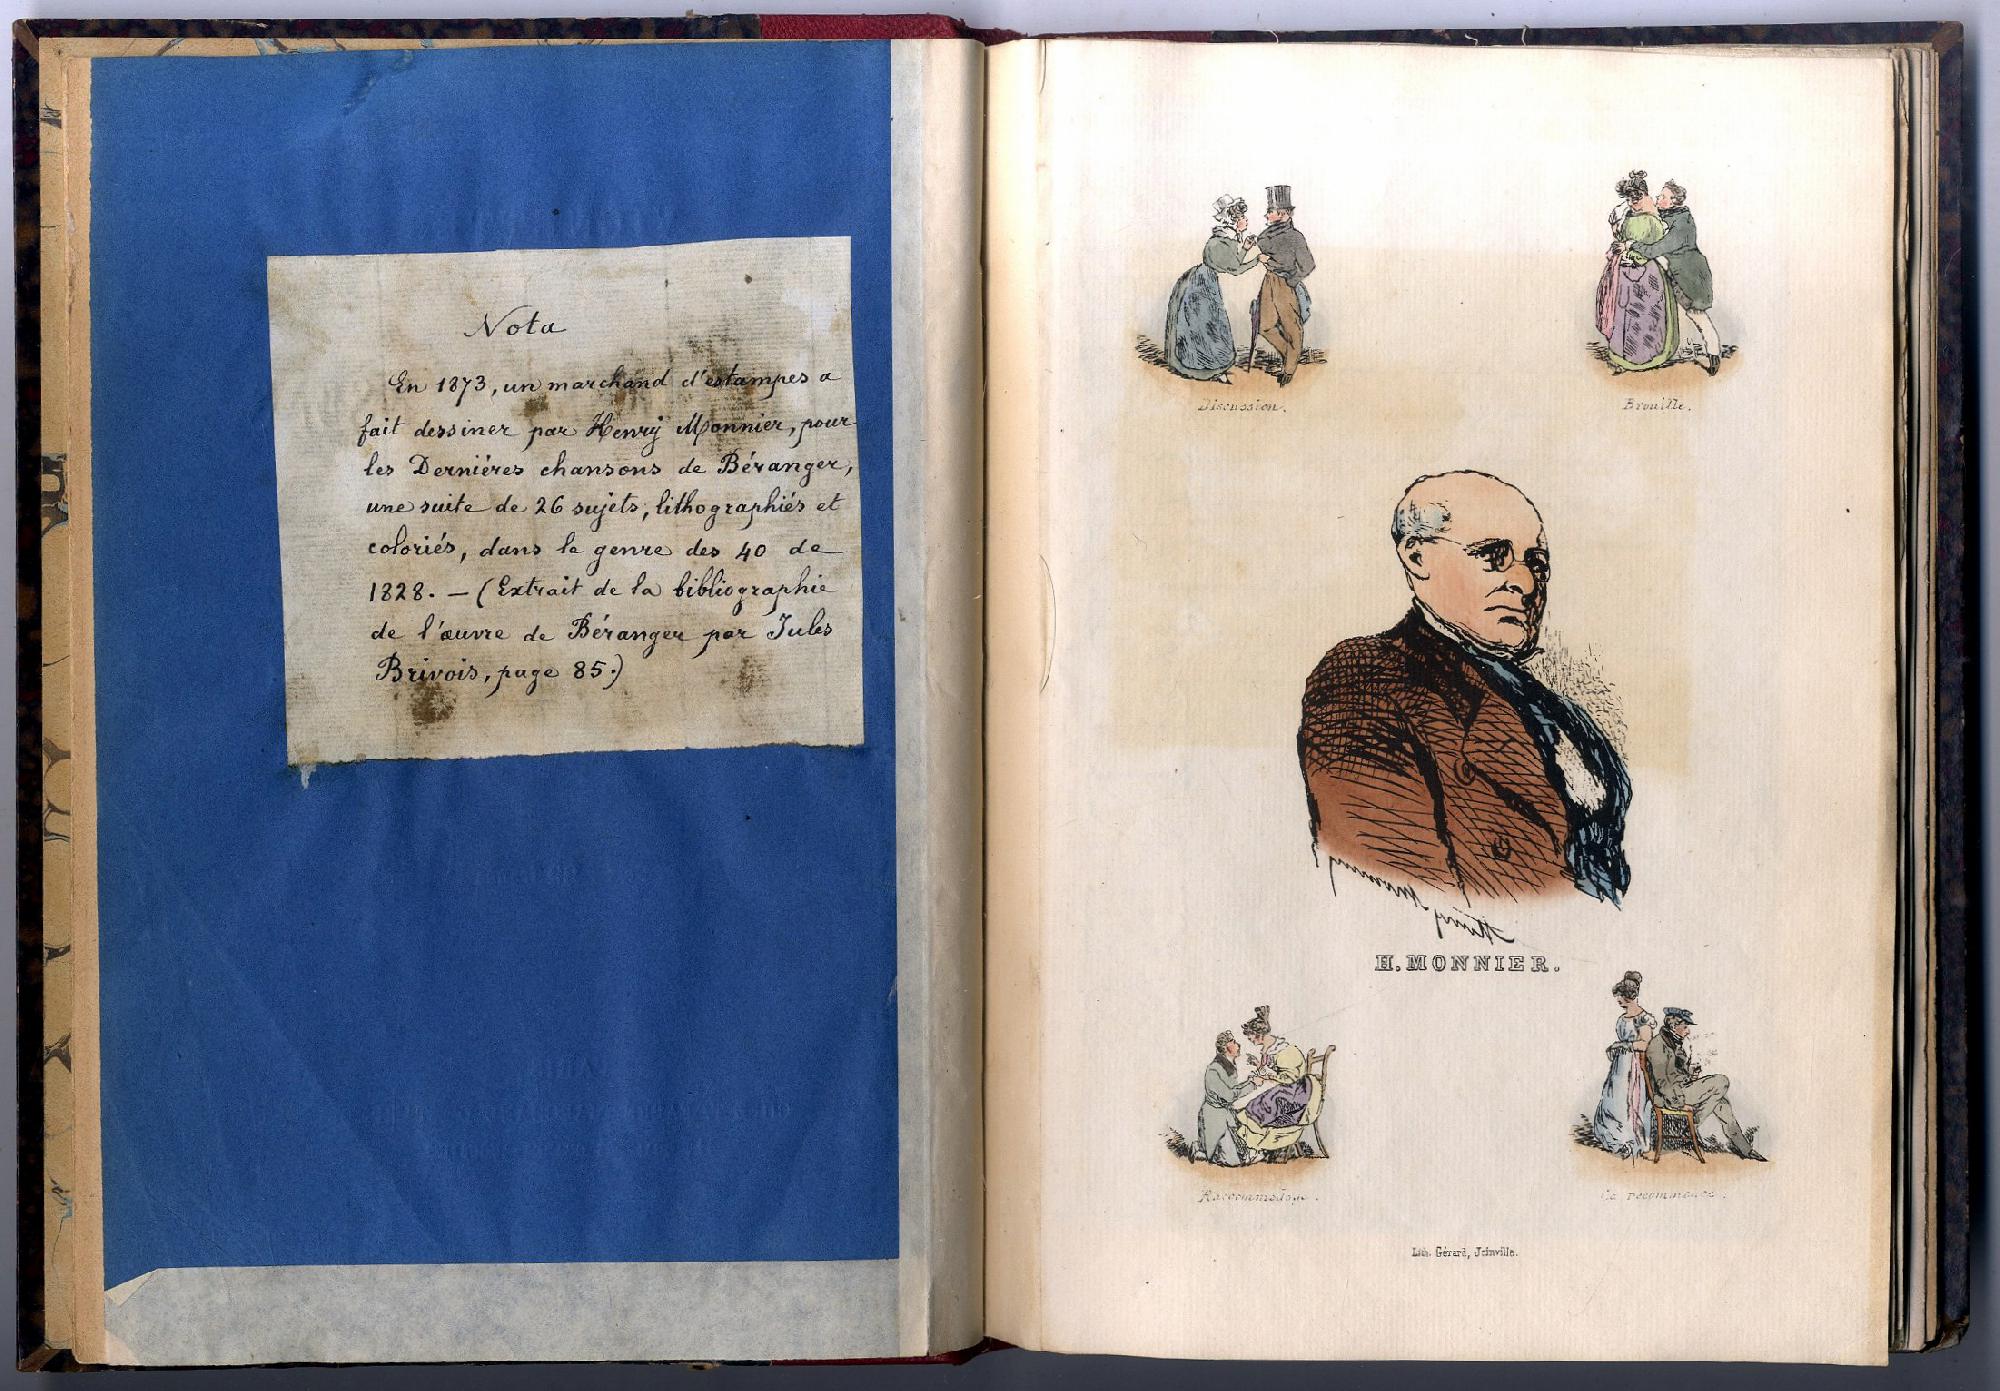 Nota
En 1873, un marchand d'estampes a
fait dessiner par Henry Monnier, pour
les Dernières chansons de Béranger,
une suite de 26 sujets, lithographiés et
coloriés, dans le genre des 40 de
1828. — (Extrait de la bibliographie
de l'œuvre de Béranger par Jules
Brivois, page 85.)
Discussion.
Brouille.
H. MONNIER.
Raccommodage.
Ça recommence.
Lith. Gérard, Joinville.